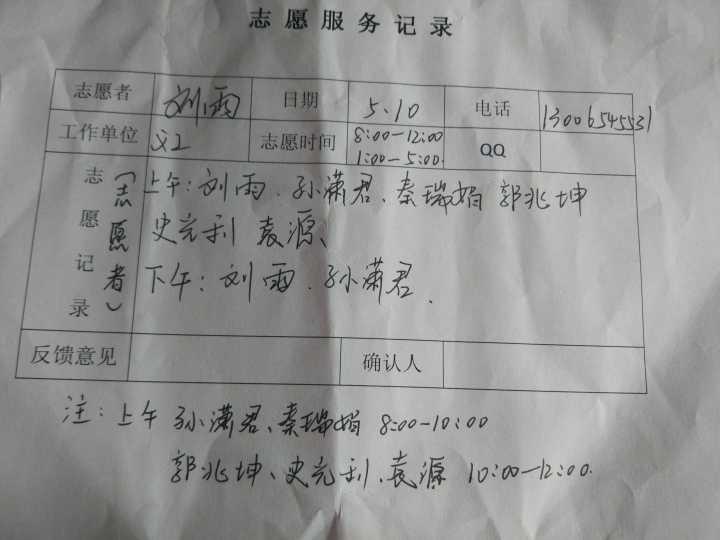 志愿服务记录
志愿者 刘雨 日期 5.10 电话 13006545531
工作单位 义工 志愿时间 8:00—12:00 1:00—5:00. QQ
志愿记录（志愿者） 上午：刘雨．孙潇君、秦瑞娟 郭兆坤
史克利 袁源、
下午：刘雨．孙潇君．
反馈意见 确认人
注：上午 孙潇君、秦瑞娟 8:00-10:00
郭兆坤、史克利、袁源 10:00-12:00.